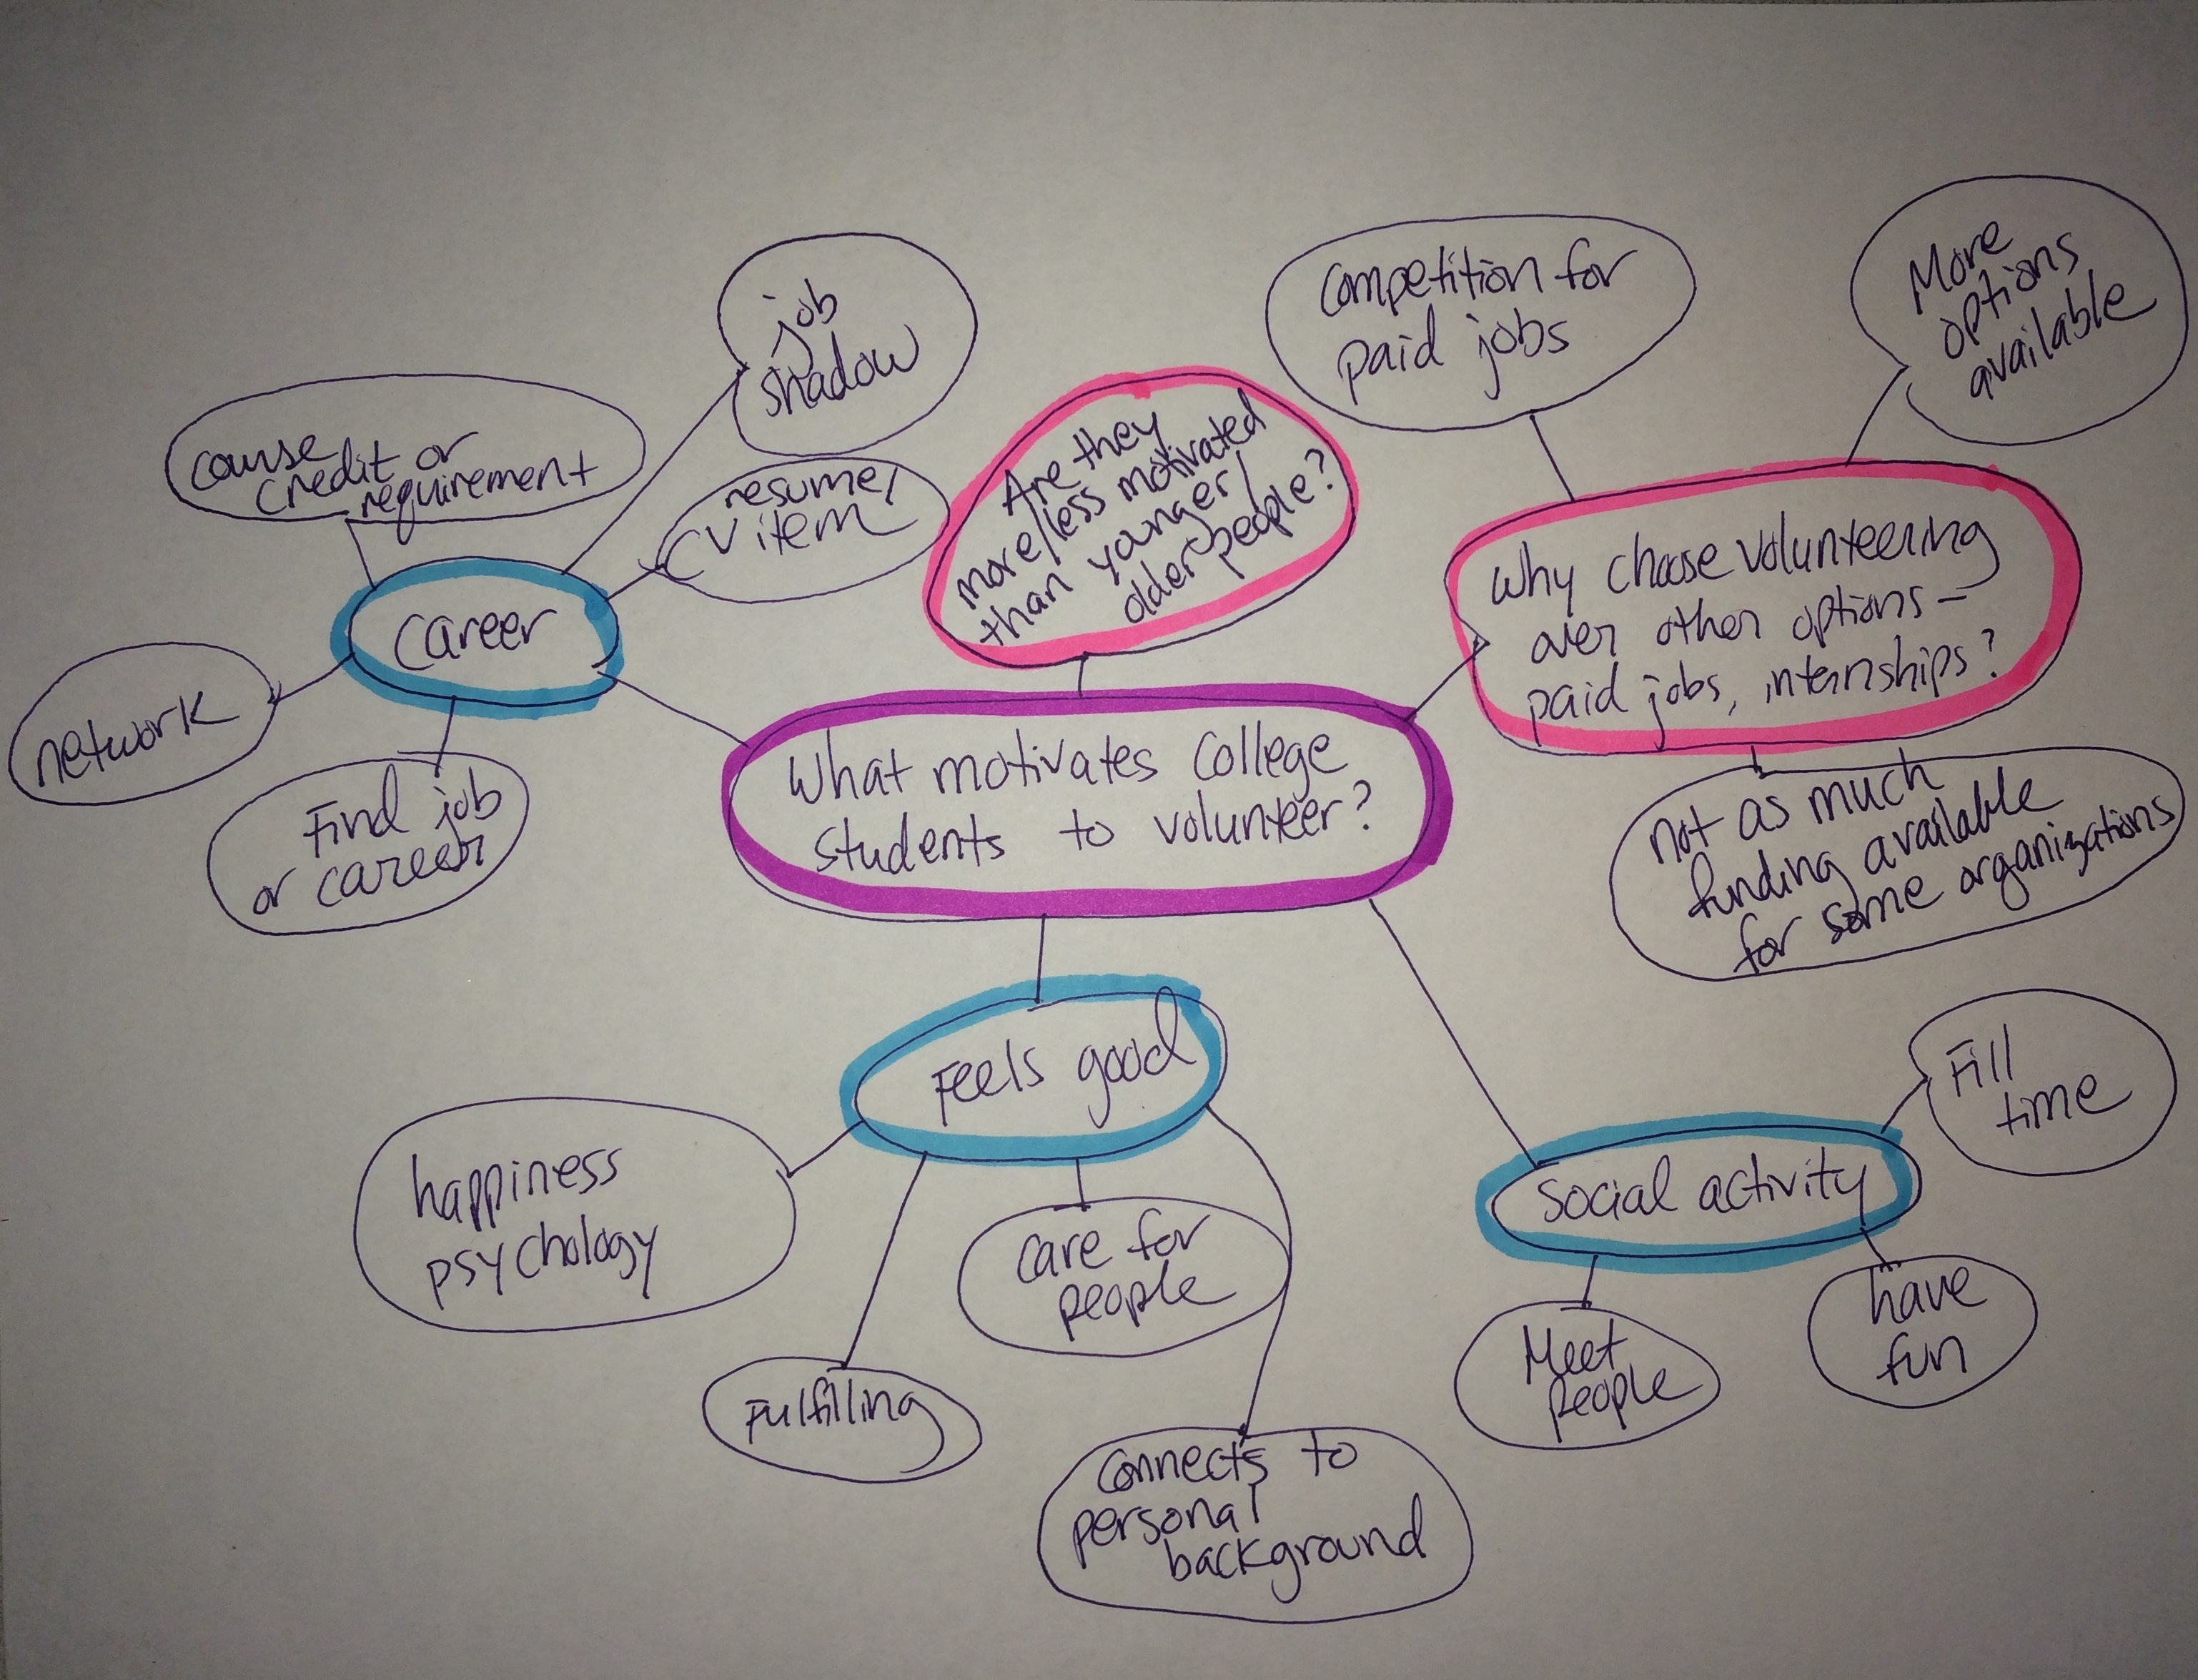 job
shadow
course
credit or
requirement
resume/
CV item
career
network
Find job
or career
Are they
more/less motivated
than younger/
older people?
competition for
paid jobs
More
options
available
Why choose volunteering
over other options –
paid jobs, internships?
not as much
funding available
for some organizations
What motivates college
students to volunteer?
Feels good
happiness
psychology
care for
people
Fulfilling
connects to
personal
background
social activity
Fill
time
Meet
People
have
fun